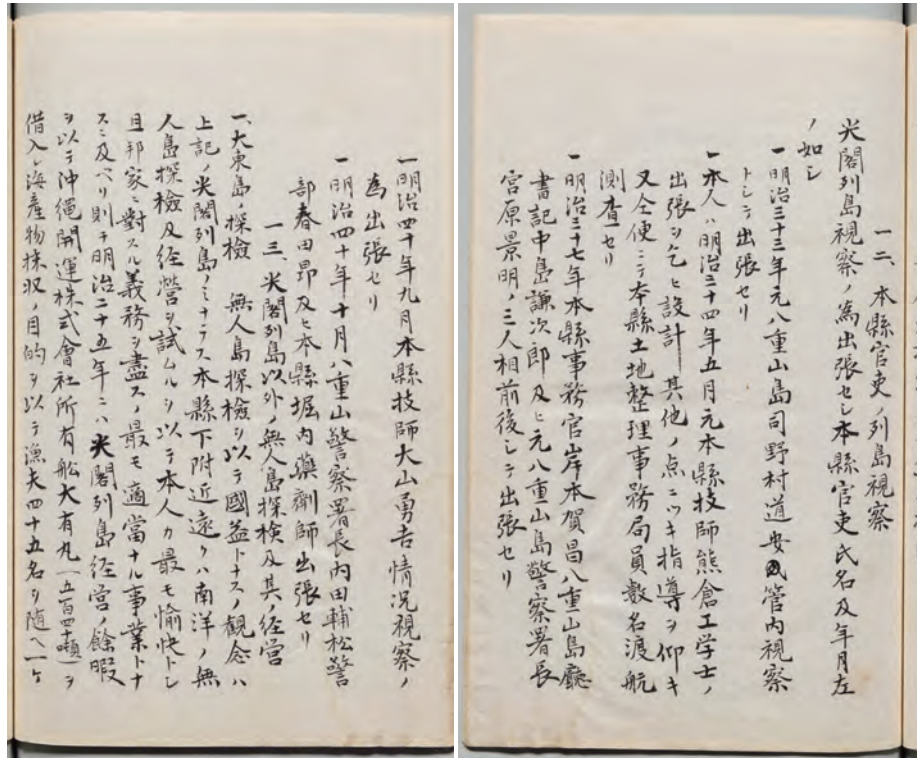 一二、本縣官吏ノ列島視察
尖閣列島視察ノ為出張セシ本縣官吏氏名及年月左
ノ如シ
一明治三十三年元八重山島司野村道安管内視察
トシテ出張セリ
一本人ハ明治三十四年五月元本縣技師熊倉工学士ノ
出張ヲ乞ヒ設計其他ノ点ニツキ指導ヲ仰キ
又仝便ニテ本縣土地整理事務局員数名渡航
測查セリ
一明治三十七年本縣事務官岸本賀昌八重山島廳
書記中島謙次郎及ヒ元八重山島警察署長
宮原景明ノ三人相前後シテ出張セリ
一明治四十年九月本縣技師大山勇吉情況視察ノ
為出張セリ
一明治四十年十月八重山警察署長内田輔松警
部春田昂及ヒ本縣堀内藥劑師出張セリ
一三、尖閣列島以外ノ無人島探検及其ノ経営
一、大東島ノ探檢 無人島探檢ヲ以テ國益トナスノ観念ハ
上記ノ尖閣列島ノミナラス本縣下附近遠クハ南洋ノ無
人島探檢及経營ヲ試ムルヲ以テ本人カ最モ愉快トシ
且邦家ニ對スル義務ヲ盡スノ最モ適當ナル事業トナ
スニ及ヘリ則チ明治二十五年ニハ尖閣列島経営ノ餘暇
ヲ以テ沖縄開運株式會社所有船大有丸（五百四十噸）ヲ
借入レ海産物採収ノ目的ヲ以テ漁夫四十五名ヲ随ヘ一ケ